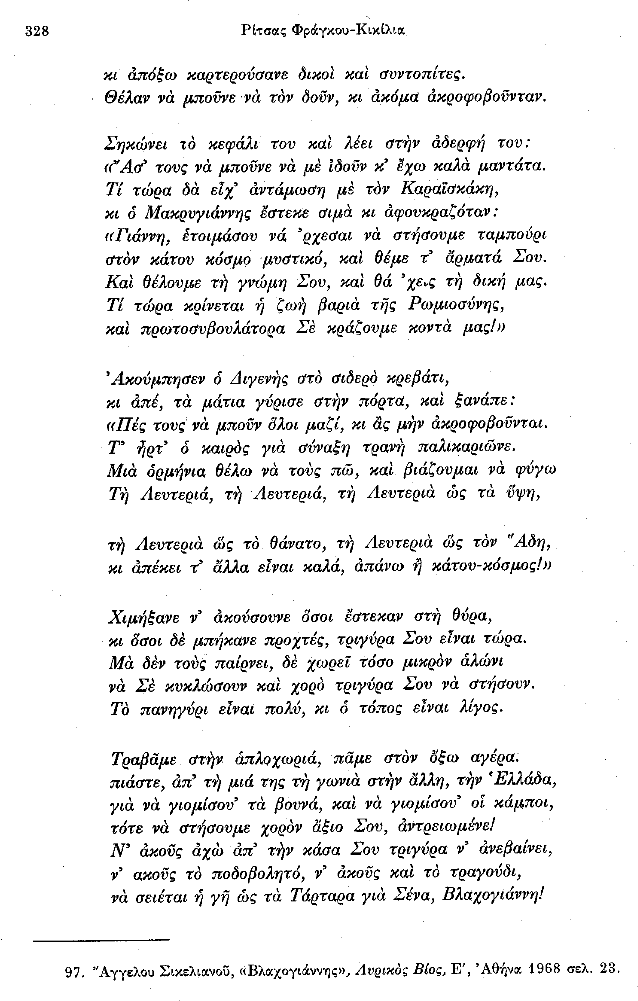 328
Ρίτσας Φράγκου-Κικίλια
κι ἀπόξω καρτερούσανε δικοὶ καὶ συντοπίτες.
Θέλαν νὰ μποῦνε νὰ τὸν δοῦν, κι ἀκόμα ἀκροφοβοῦνταν.
Σηκώνει τὸ κεφάλι του καὶ λέει στὴν ἀδερφή του:
«Ἄσ' τους νὰ μποῦνε νὰ μὲ ἰδοῦν κ' ἔχω καλὰ μαντάτα.
Τί τώρα δὰ εἶχ' ἀντάμωση μὲ τὸν Καραϊσκάκη,
κι ὁ Μακρυγιάννης ἔστεκε σιμὰ κι ἀφουκραζόταν:
«Γιάννη, ἑτοιμάσου νά 'ρχεσαι νὰ στήσουμε ταμπούρι
στὸν κάτου κόσμο μυστικό, καὶ θέμε τ' ἄρματά Σου.
Καὶ θέλουμε τὴ γνώμη Σου, καὶ θά 'χεις τὴ δική μας.
Τί τώρα κρίνεται ἡ ζωὴ βαριὰ τῆς Ρωμιοσύνης,
καὶ πρωτοσυβουλάτορα Σὲ κράζουμε κοντὰ μας!»
Ἀκούμπησεν ὁ Διγενὴς στὸ σιδερὸ κρεβάτι,
κι ἀπέ, τὰ μάτια γύρισε στὴν πόρτα, καὶ ξανάπε:
«Πές τους νὰ μποῦν ὅλοι μαζί, κι ἂς μὴν ἀκροφοβοῦνται.
Τ' ἦρτ' ὁ καιρὸς γιὰ σύναξη τρανὴ παλικαριῶνε.
Μιὰ ὁρμήνια θέλω νὰ τοὺς πῶ, καὶ βιάζουμαι νὰ φύγω
Τὴ Λευτεριά, τὴ Λευτεριά, τὴ Λευτεριὰ ὡς τὰ ὕψη,
τὴ Λευτεριὰ ὥς τὸ θάνατο, τὴ Λευτεριὰ ὥς τὸν Ἅδη,
κι ἀπέκει τ' ἄλλα εἶναι καλά, ἀπάνω ἢ κάτου-κόσμος!»
Χιμήξανε ν' ἀκούσουνε ὅσοι ἔστεκαν στὴ θύρα,
κι ὅσοι δὲ μπήκανε προχτές, τριγύρα Σου εἶναι τώρα.
Μὰ δὲν τοὺς παίρνει, δὲ χωρεῖ τόσο μικρὸν ἁλώνι
νὰ Σὲ κυκλώσουν καὶ χορὸ τριγύρα Σου νὰ στήσουν.
Τὸ πανηγύρι εἶναι πολύ, κι ὁ τόπος εἶναι λίγος.
Τραβᾶμε στὴν ἁπλοχωριά, πᾶμε στὸν ὄξω αγέρα.
πιάστε, ἀπ' τὴ μιά της τὴ γωνιὰ στὴν ἄλλη, τὴν Ἑλλάδα,
γιὰ νὰ γιομίσου' τὰ βουνά, καὶ νὰ γιομίσου' οἱ κάμποι,
τότε νὰ στήσουμε χορὸν ἄξιο Σου, ἀντρειωμένε!
Ν' ἀκοῦς ἀχὼ ἀπ' τὴν κάσα Σου τριγύρα ν' ἀνεβαίνει,
ν' ακοῦς τὸ ποδοβολητό, ν' ἀκοῦς καὶ τὸ τραγούδι,
νὰ σειέται ἡ γῆ ὡς τὰ Τάρταρα γιὰ Σένα, Βλαχογιάννη!
97. Ἄγγελου Σικελιανοῦ, «Βλαχογιάννης», Λυρικὸς Βίος, Ε', Ἀθήνα 1968 σελ. 23.